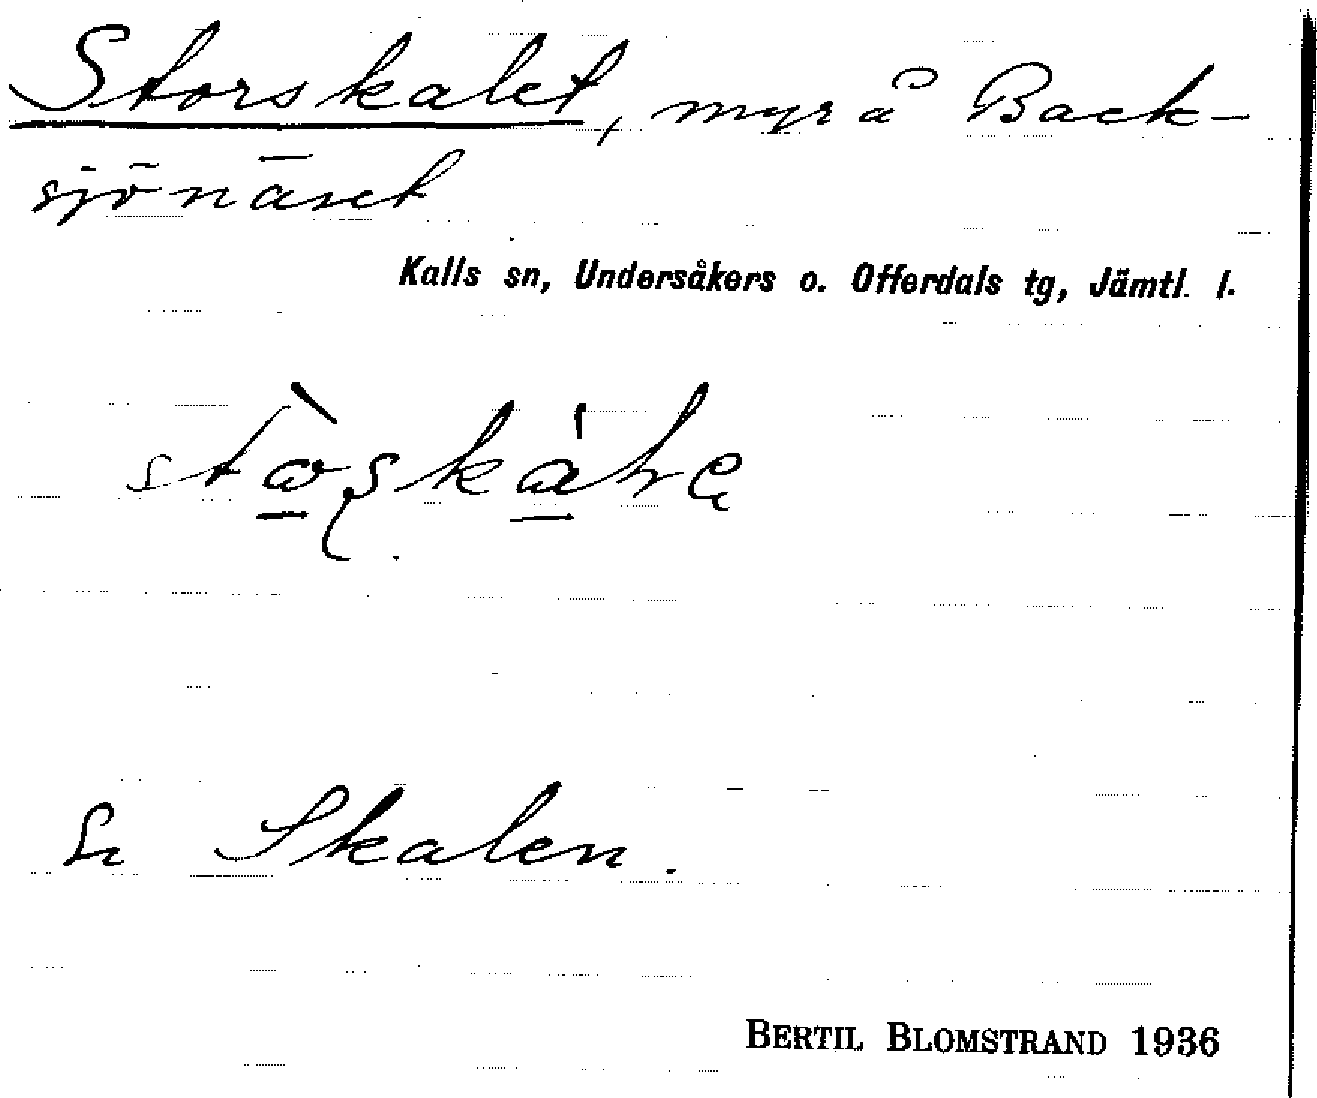 Storskalet, myr å Back-
sjönäset
Kalls sn, Undersåkers o. Offerdals tg, Jämtl. l.
Se Skalen.
BERTIL BLOMSTRAND 1936